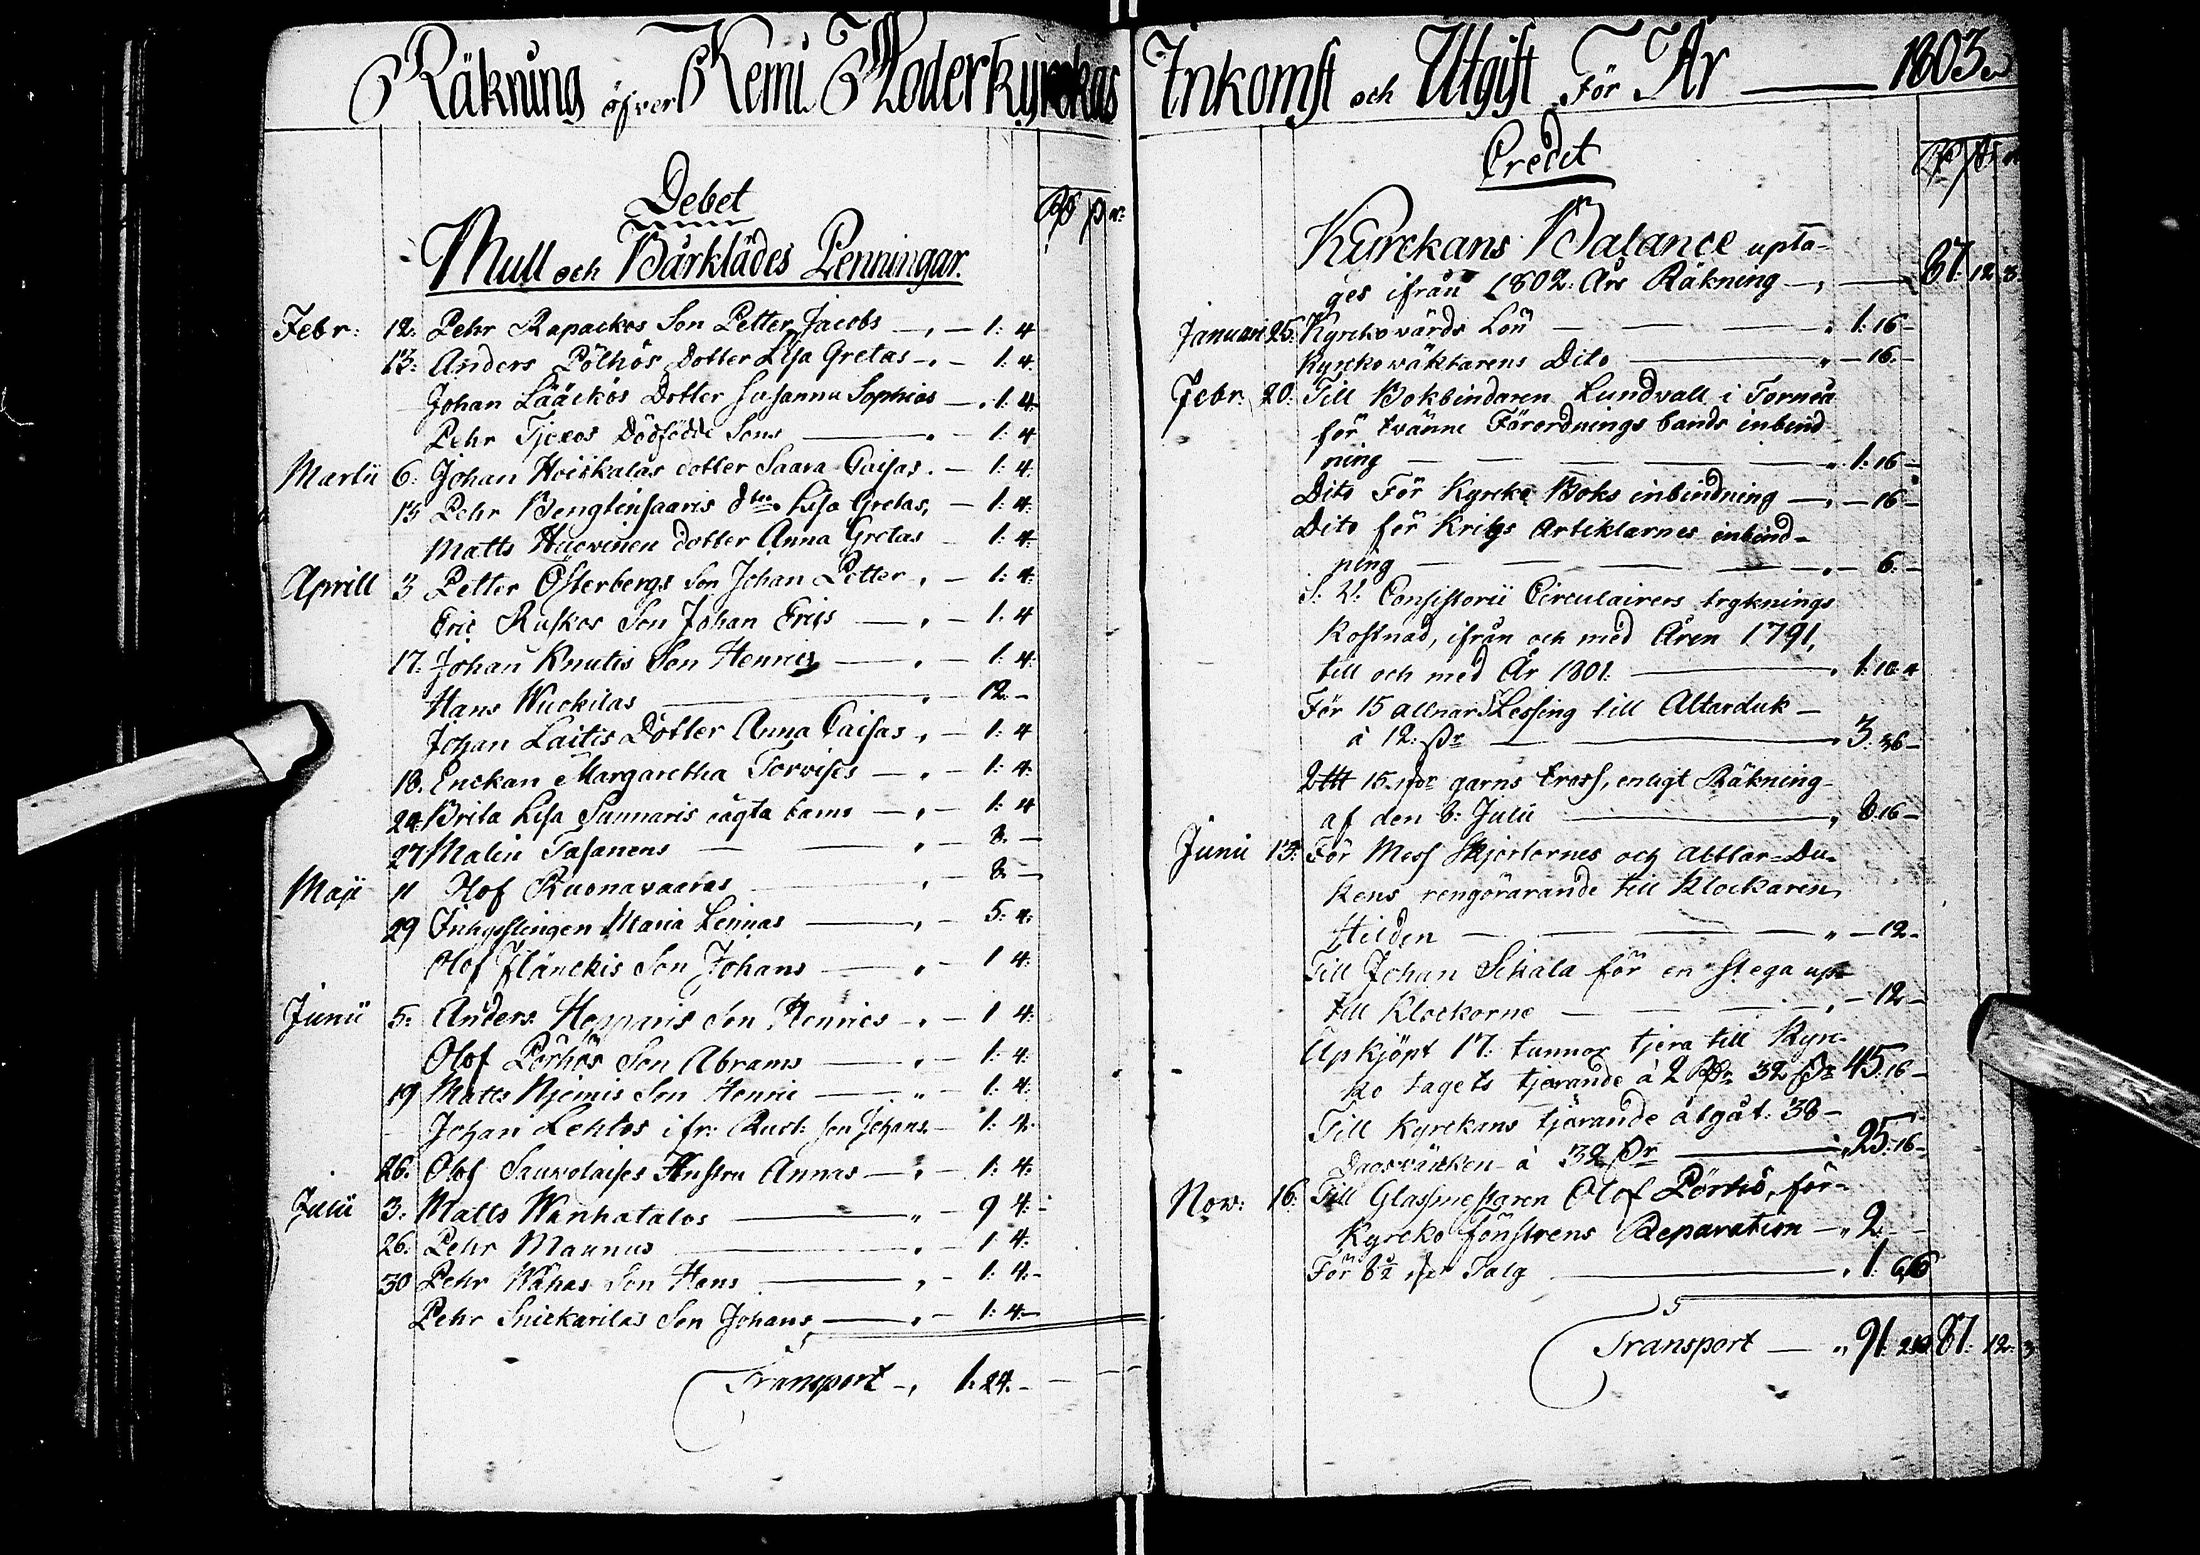 Räkning öfver Kemi Moderkyrckas Inkomst och Utgift För År 1803.
Debet
Mull och Bårklädes Penningar.
Febr: 12. Pehr Rapackos Son Petter Jacobs 1: 4
13: Anders Pölhös Dotter Lisa Gretas 1: 4.
Johan Lääckös Dotter Susanna Sophias 1: 4
Pehr Dödfödde Sons 1: 4
Martii 6. Johan Hoickalas dotter Saara Caisas. 1: 4:
13 Pehr Bengtinsaaris dter Lisa Gretas, 1: 4:
Matts Huovinen dotter Anna Gretas 1: 4:
Aprill 3 Petter Österbergs Son Johan Petter 1: 4:
Eric Ruskos Son Johan Erics 1. 4
17. Johan Knutis Son Henrics 1: 4:
Hans Wuokilas 12.
Johan Laitis Dotter Anna Caisas 1: 4
18. Enckan Margaretha Torvises 1: 4.
24. Brita Lisa Sunnaris oägta barns 1: 4
27 Malin Tasanens 8.
Maji 11 Olof Ruonavaaras 8.
29 Inhysslingen Maria Leinas 5: 4:
Olof Flänckis Son Johans 1 4:
Junii 5: Anders Hepparis Son Henrics 1 4:
Olof Pörhös Son Abrams 1: 4:
19 Matts Njemis Son Henric 1: 4:
Johan Lehtos ifr: Son Johans 1: 4:
26. Olof Sauvolaises Hustru Annas 1: 4:
Julii 3: Matts Wanhatalos 9 4:
26. Pehr Maunus 1 4:
30 Pehr Wähäs Son Hans 1: 4.
Pehr Snickarilas Son Johans 1: 4
Transport 1: 24.
Credit
Kyrckans Balance upta-
ges ifrån 1802. Års Räkning 87. 12. 3.
Januari 25. Kyrcko värds Lön 1: 16
Kyrcko väktarens Dito 16.
Febr: 20: Till Bokbindaren Lundvall i Torneå
för tvänne Förordnings bands inbind
ning 1: 16
Dito För Kyrcko Boks inbindning 16
Dito för Krigs Artiklarnes inbind-
ning 6.
S: V: Consistorii Circulairers trycknings
kostnad, ifrån och med Åren 1791,
till och med År 1801. 1: 10. 4
För 15 allnar till Altarduk
à 12: 3: 36
15 garns trass, enligt Räkning
af den 8: Julii 8. 16
Junii 13: För Mess Skjortornes och Altar-Du-
kens rengörarande till Klockaren
Heiden 12
Till Johan Sihala för en stega up
till Klockorne 12
Upkjöpt 17: tunnor tjera till Kyrc-
ko tagets tjärande à 2 32 45. 16
Till Kyrckans tjärande åtgåt: 38
Dagsvärken à 32 25: 16
Nov: 16: Till Glassmestaren Olof Pörhö, för
Kyrcko fönstrens Reparation 2.
För 8½ Talg 1:
Transport 91: 87: 12. 3